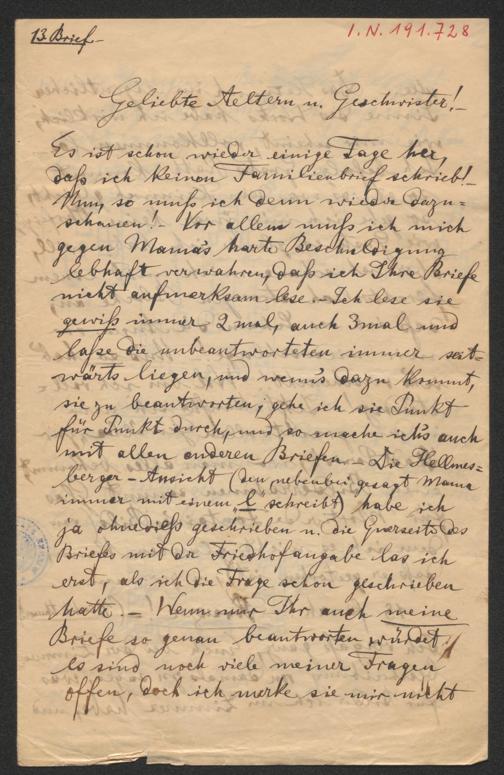 13. Brief.
I.N. 191.728
Geliebte Aeltern u. Geschwister!-
Es ist schon wieder einige Tage her,
daß ich keinen Familienbrief schrieb!-
Nun, so muß ich denn wieder dazu=
schauen!- Vor allem muß ich mich
gegen Mama's harte Beschuldigung
lebhaft verwahren, daß ich Ihre Briefe
nicht aufmerksam lese.- Ich lese sie
gewiß immer 2 mal, auch 3 mal und
laße die unbeantworteten immer seit=
wärts liegen, und wenn's dazu kommt,
sie zu beantworten, gehe ich sie Punkt
für Punkt durch, und so mache ich's auch
mit allen anderen Briefen.- Die Hellmes=
berger-Ansicht (den nebenbei gesagt Mama
immer mit einem "l" schreibt) habe ich
ja ohnedieß geschrieben u. die Querseite des
Briefes mit der Friedhofangabe las ich
erst, als ich die Frage schon geschrieben
hatte.- Wenn nur Ihr auch meine
Briefe so genau beantworten würdet,
es sind noch viele meiner Fragen
offen, doch ich merke sie mir nicht